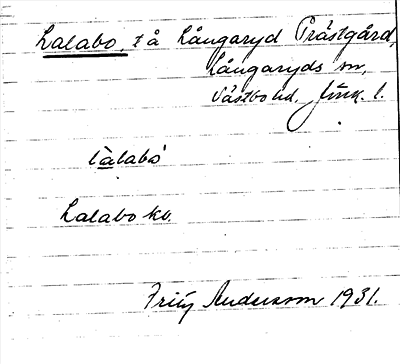 Lalabo, t å Långaryd Prästgård,
Långaryds sn,
Västbo hd. Jönk. l.
làlabó
Lalabo kv.
Fritz Andersson 1931.